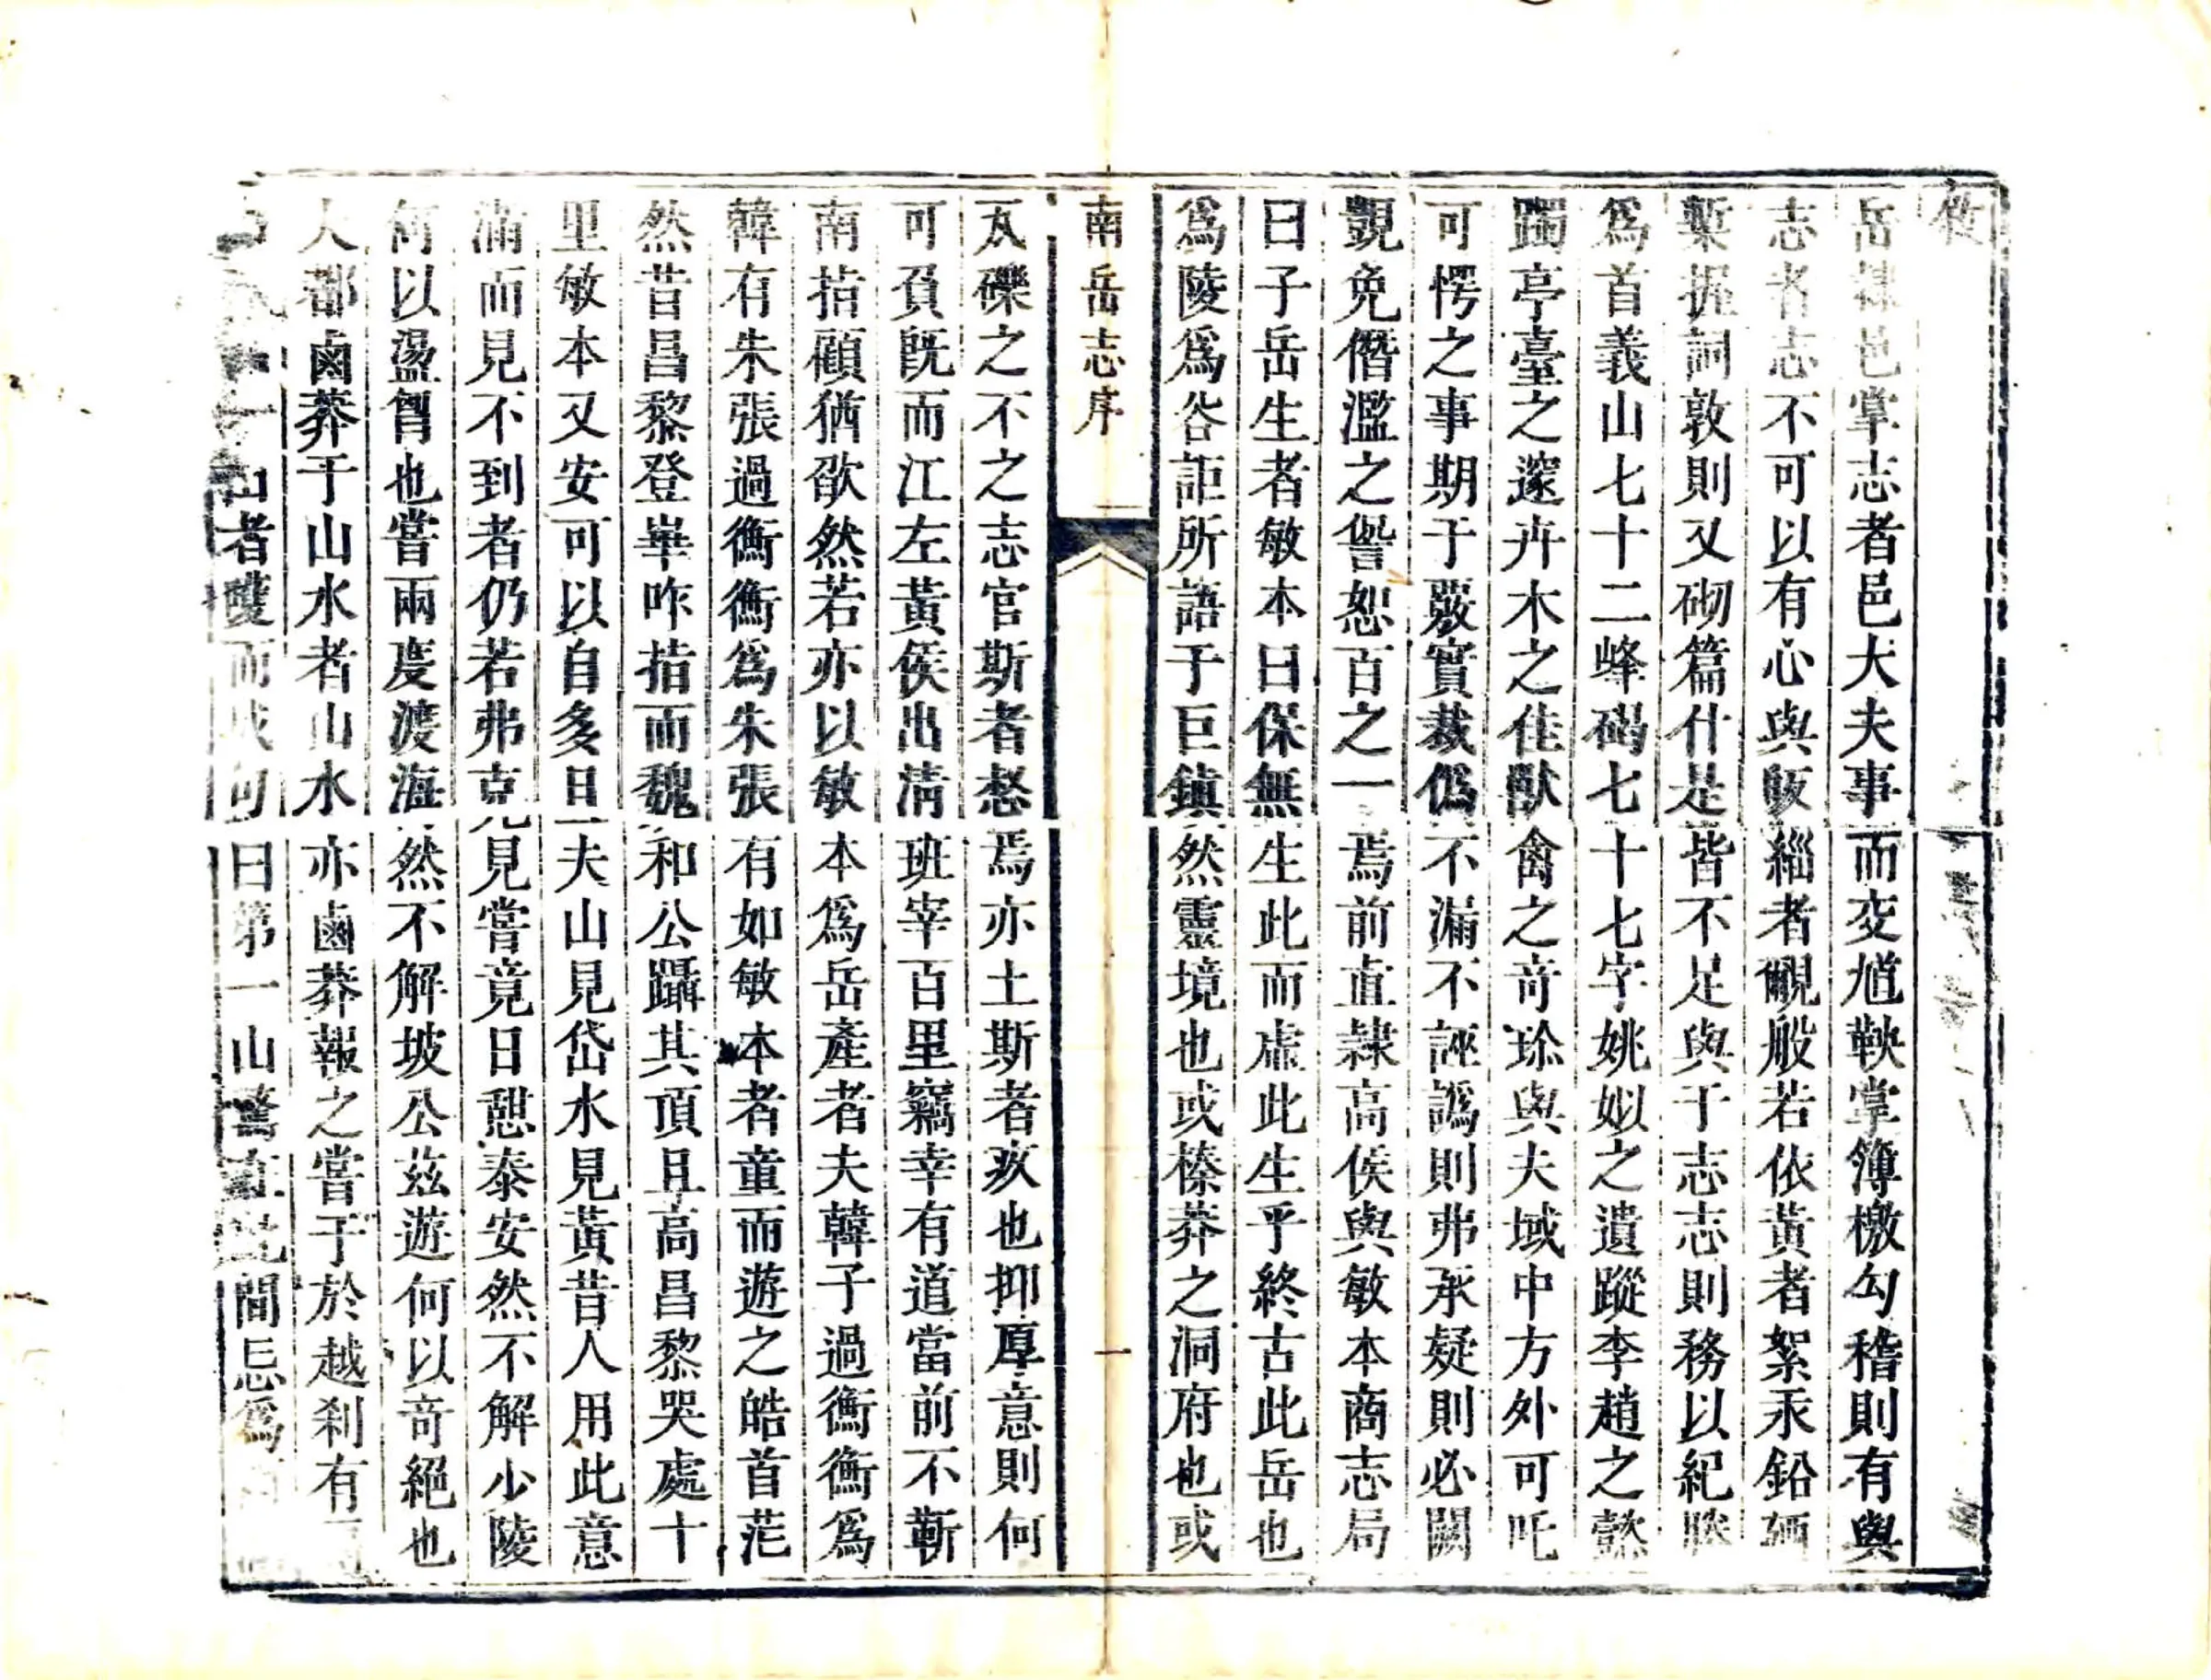 叙
岳隸邑掌志者邑大夫事而交尯鞅掌簿檄勾稽則有與
志者志不可以有心與皈緇者覼般若依黃者絮汞鉛
槧握詞敦則又砌篇什是皆不足與于志志則務以紀勝
爲首義山七十二峰碣七十七字姚姒之遺蹤李趙之懿
躅亭臺之邃卉木之佳獸禽之竒珍與夫域中方外可吒
可愕之事期于覈實裁僞不漏不誣譌則弗承疑則必闕
覬免僭濫之訾恕百之一焉前直隸高侯與敏本商志局
曰子岳生者敏本曰保無生此而虛此生乎終古此岳也
爲陵爲谷詎所語于巨鎮然靈境也或榛莽之洞府也或
南岳志序
一
瓦礫之不之志官斯者惄焉亦土斯者疚也抑厚意則何
可負旣而江左黃侯出淸班宰百里竊幸有道當前不蘄
南指顧猶欲然若亦以敏本爲岳產者夫韓子過衡衡爲
韓有朱張過衡衡爲朱張有如敏本者童而遊之皓首茫
然昔昌黎登崋咋指而魏和公躡其頂且高昌黎哭處十
里敏本又安可以自多日夫山見岱水見黃昔人用此意
滿而見不到者仍若弗克見嘗竟日憇泰安然不解少陵
何以盪胷也嘗兩度渡海然不解坡公茲遊何以竒絕也
大都鹵莽于山水者山水亦鹵莽報之嘗于於越刹有
一山者雙而成何曰第一山 間忘爲